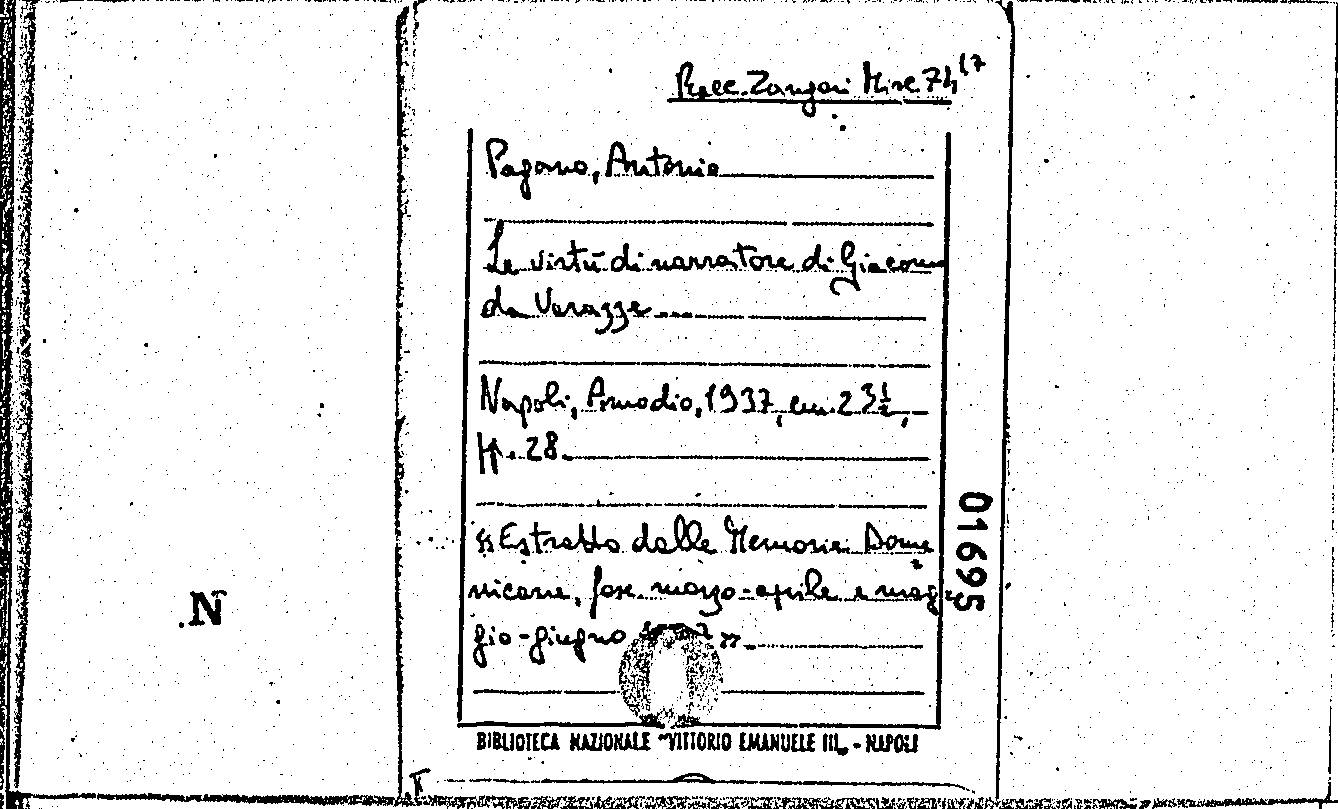 Racc. Zangari Misc. 74(7
Pagano, Antonio
Le virtù di narratore di Giacomo
da Varazze...
Napoli, Amodio, 1937, cm. 23½,
pp. 28.
«Estratto dalle Memorie Dome
nicane, fasc. marzo-aprile e mag-
gio-giugno »».
01695
N
BIBLIOTECA NAZIONALE "VITTORIO EMANUELE III„ - NAPOLI